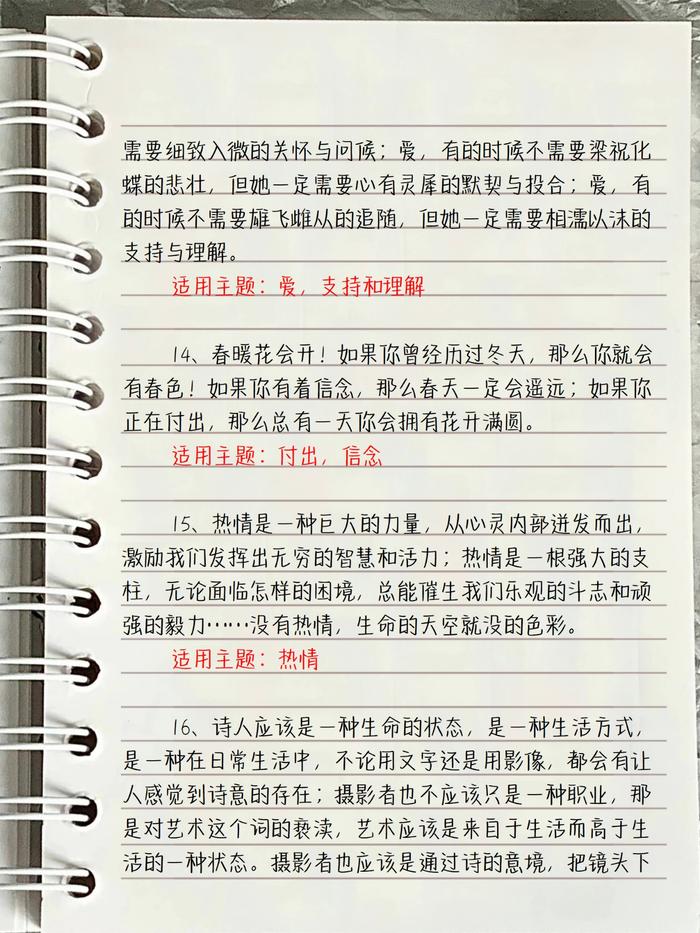 需要细致入微的关怀与问候；爱，有的时候不需要梁祝化
蝶的悲壮，但她一定需要心有灵犀的默契与投合；爱，有
的时候不需要雄飞雌从的追随，但她一定需要相濡以沫的
支持与理解。
适用主题：爱，支持和理解
14、春暖花会开！如果你曾经历过冬天，那么你就会
有春色！如果你有着信念，那么春天一定会遥远；如果你
正在付出，那么总有一天你会拥有花开满圆。
适用主题：付出，信念
15、热情是一种巨大的力量，从心灵内部迸发而出，
激励我们发挥出无穷的智慧和活力；热情是一根强大的支
柱，无论面临怎样的困境，总能催生我们乐观的斗志和顽
强的毅力……没有热情，生命的天空就没的色彩。
适用主题：热情
16、诗人应该是一种生命的状态，是一种生活方式，
是一种在日常生活中，不论用文字还是用影像，都会有让
人感觉到诗意的存在；摄影者也不应该只是一种职业，那
是对艺术这个词的亵渎，艺术应该是来自于生活而高于生
活的一种状态。摄影者也应该是通过诗的意境，把镜头下